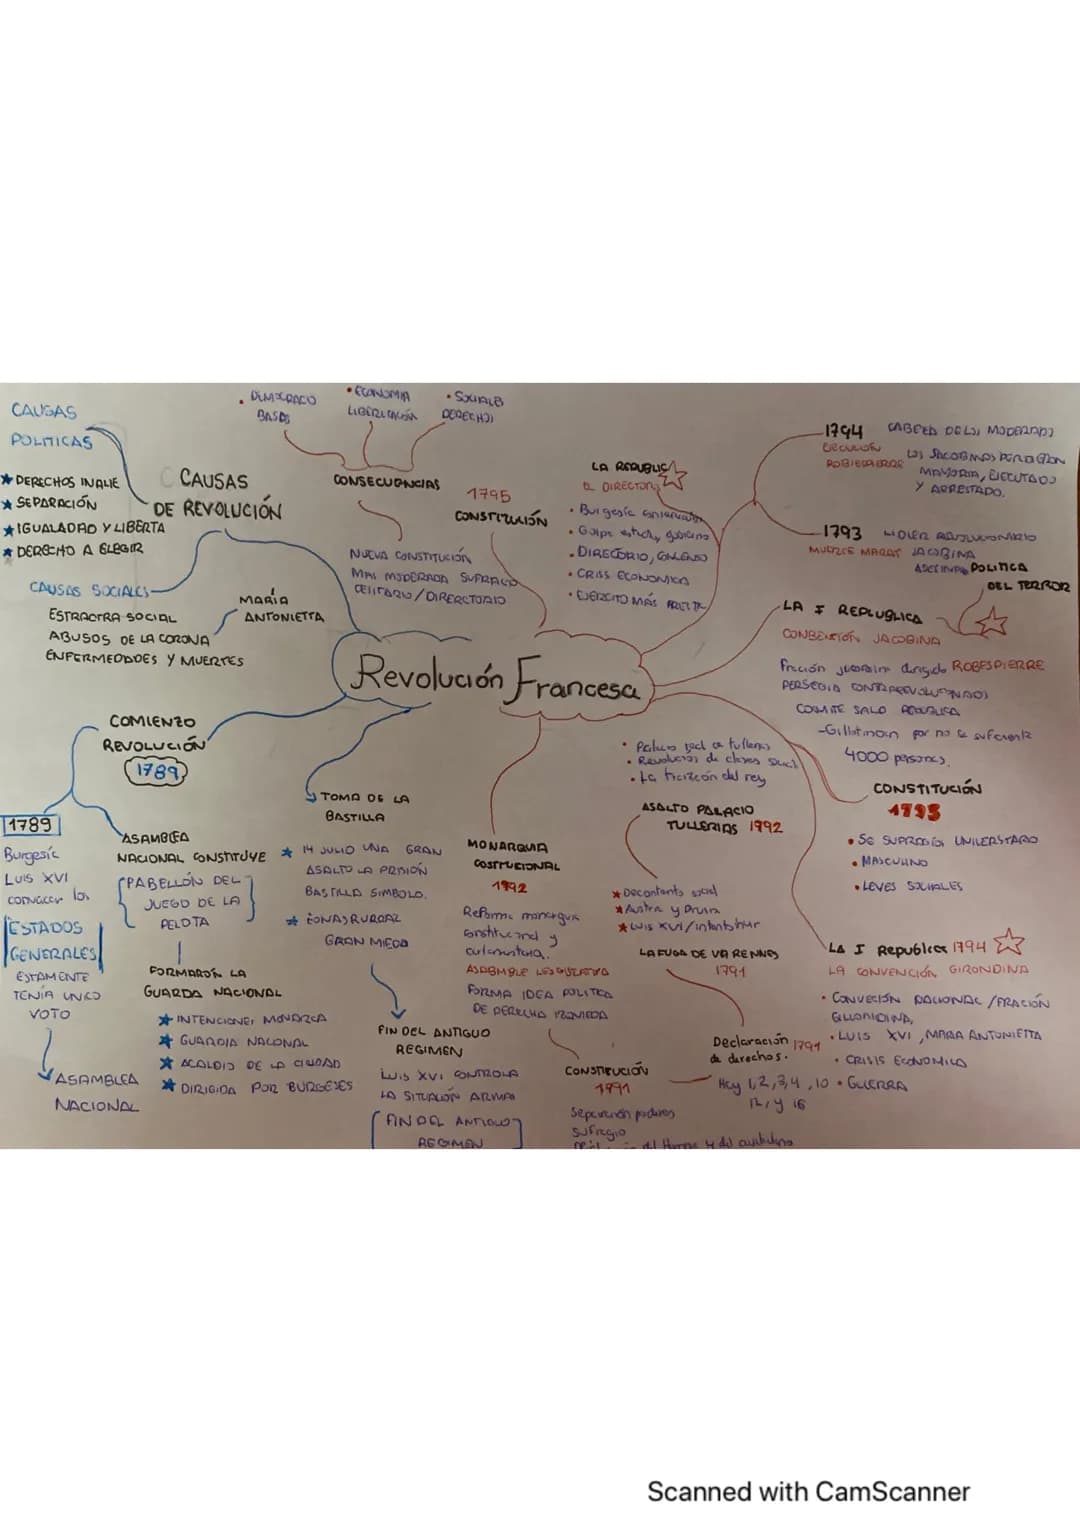 CAUSAS
POLITICAS
★ DERECHOS INALIE
★ SEPARACIÓN
★ IGUALADAD Y LIBERTA
★ DERECHO A ELEGIR
CAUSAS
DE REVOLUCIÓN
CAUSAS SOCIALES
ESTRACTRA SOCIAL
ABUSOS DE LA CORONA
ENFERMEDADES Y MUERTES
MARÍA
ANTONIETTA
• DEMOCRACO
BASES
• ECONOMIA
LIBERILACIÓN
• SOCIALES
DERECHOS
CONSECUENCIAS
NUEVA CONSTITUCIÓN
MAS MODERADA SUFRAGIO
1795
CONSTITUCIÓN
LA REPUBLICA
EL DIRECTORIO
• Burgesía
• Golpe estado, gobierno
• DIRECTORIO,
• CRISS ECONOMICA
• EJERCITO MÁS
1794
EJECUCIÓN
ROBIESPIERRE
CABEZA DE LOS MODERADOS
LOS JACOBINOS
MAYORIA, EJECUTADOS
Y ARRESTADO.
1793
MUERTE MARAT
LIDER REVOLUCIONARIO
JACOBINA
POLITICA
DEL TERROR
LA I REPLUBLICA
CONBENSIÓN JACOBINA
Fracción jacobina dirigido ROBESPIERRE
COMITE SALD REPUBLICA
por no
4000 personas.
Revolución Francesa
CONSTITUCIÓN
1793
UNIVERSTARIO
• MASCULINO
• LEYES SOCIALES
LA I Republica 1794
LA CONVENCIÓN GIRONDINA
• CONVECIÓN NACIONAL /FRACIÓN
• LUIS XVI, MARIA ANTONIETTA
• CRISIS ECONOMICA
• GUERRA
• Palacio real a tullerias
• Revolución de clases social
• La traición del rey
ASALTO PALACIO
TULLERIAS 1792
★ Decontento social
★ Austria y Prusia
★ Luis XVI/
LA FUGA DE VARENNES
1791
Declaración 1791
de derechos.
Hay 1,2,3,4,10
12, y 16
MONARQUIA
COSTITUCIONAL
1792
Reforma monarquia
constitucional y
ASAMBLE LEGISLATIVA
FORMA IDEA POLITICA
DE DERECHA IZQUIERDA
CONSTITUCIÓN
1791
Separación poderes
Sufragio
TOMA DE LA
BASTILLA
★ 14 JULIO UNA GRAN
ASALTO LA PRISIÓN
BASTILLA SIMBOLO.
★ ZONAS RURAR
GRAN MIEDO
FIN DEL ANTIGUO
REGIMEN
LUIS XVI CONTROLA
LA SITUACIÓN ARMA
FIN DEL ANTIGUO
REGIMEN
COMIENZO
REVOLUCIÓN
1789
1789
Burgesía
LUIS XVI
convocar los
ESTADOS
GENERALES
ESTAMENTE
TENÍA UNICO
VOTO
ASAMBLEA
NACIONAL
ASAMBLEA
NACIONAL CONSTITUYE
PABELLÓN DEL
JUEGO DE LA
PELOTA
FORMARON LA
GUARDA NACIONAL
★ INTENCIONES MONARCA
★ GUARDIA NACIONAL
★ ACALDIO DE LA CIUDAD
★ DIRIGIDA POR BURGESES
Scanned with CamScanner